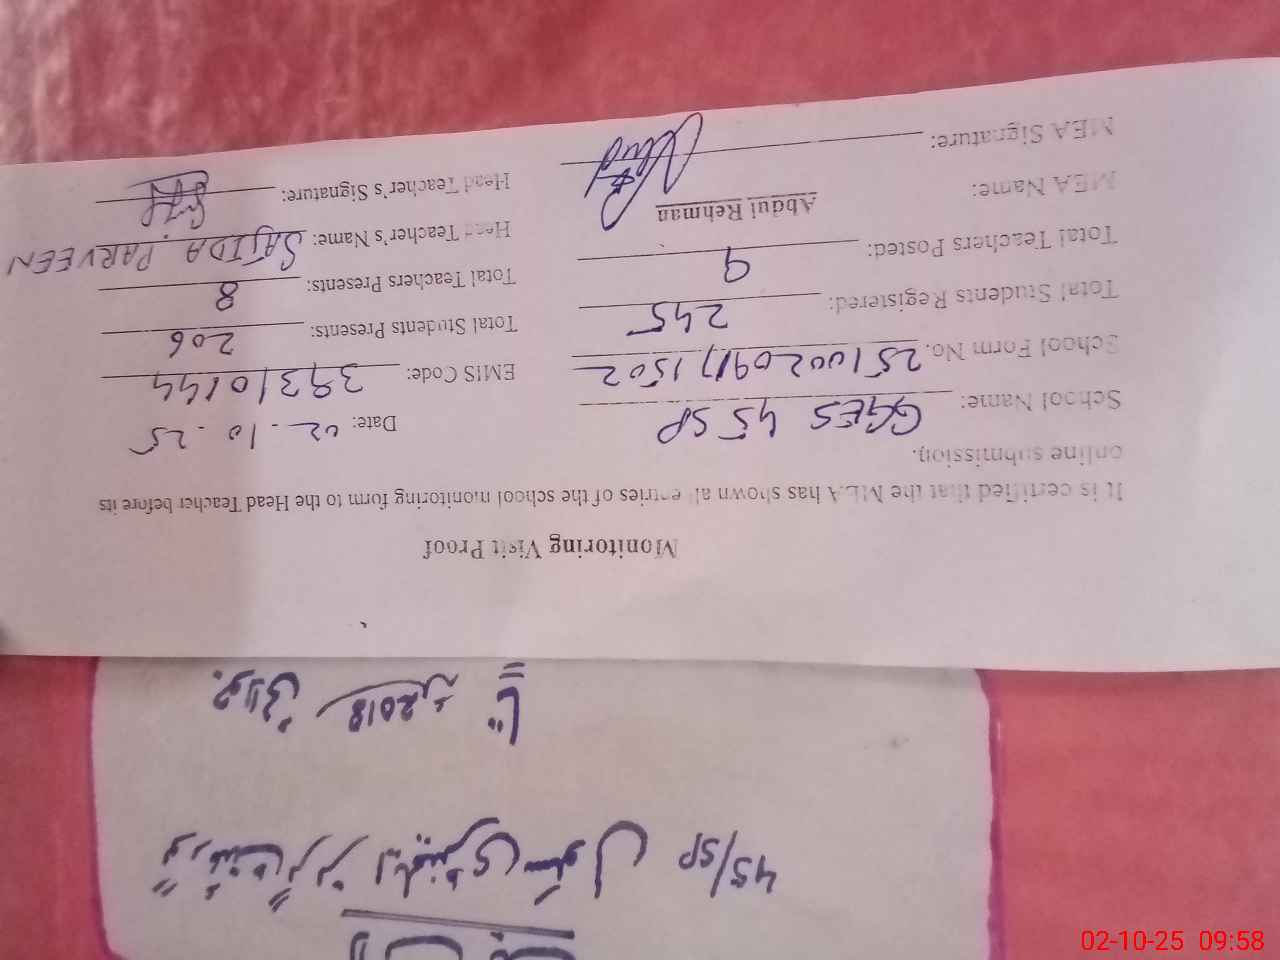 Monitoring Visit Proof
It is certified that the MEA has shown all entries of the school monitoring form to the Head Teacher before its
online submission.
School Name: GGES 45 SP Date: 02-10-25
School Form No. 25100209171502 EMIS Code: 39310144
Total Students Registered: 245 Total Students Presents: 206
Total Teachers Posted: 9 Total Teachers Presents: 8
MEA Name: Abdul Rehman Head Teacher's Name: SAJIDA PARVEEN
MEA Signature: Head Teacher's Signature:
گورنمنٹ گرلز ایلیمنٹری سکول 45/SP
2018ء تا
02-10-25 09:58